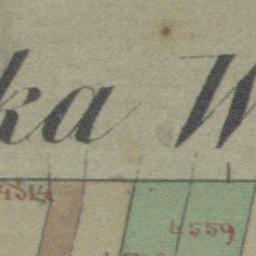 ka W
4514
4559